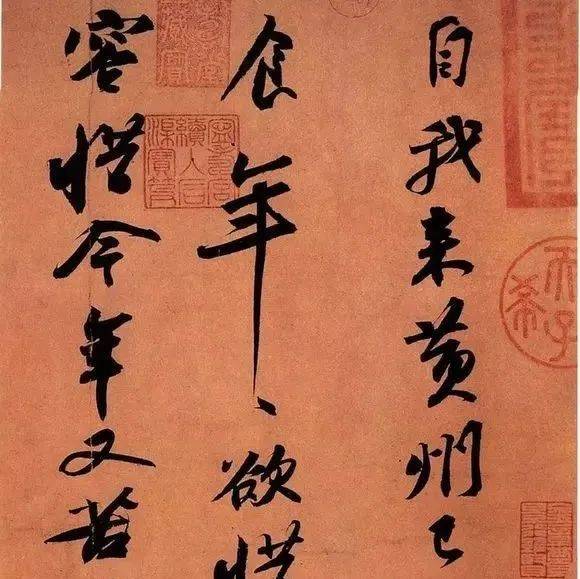 自我来黄州已
食年〻欲惜
容惜今年又苦